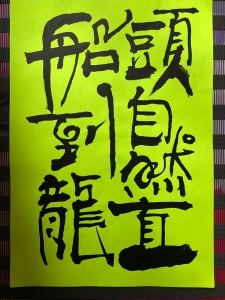 船到龍
頭自然直